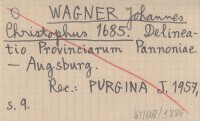 WAGNER Johannes
Christophus 1685. Delinea-
tio Provinciarum Pannoniae
— Augsburg.
Rec.: PURGINA J. 1957,
s. 9.